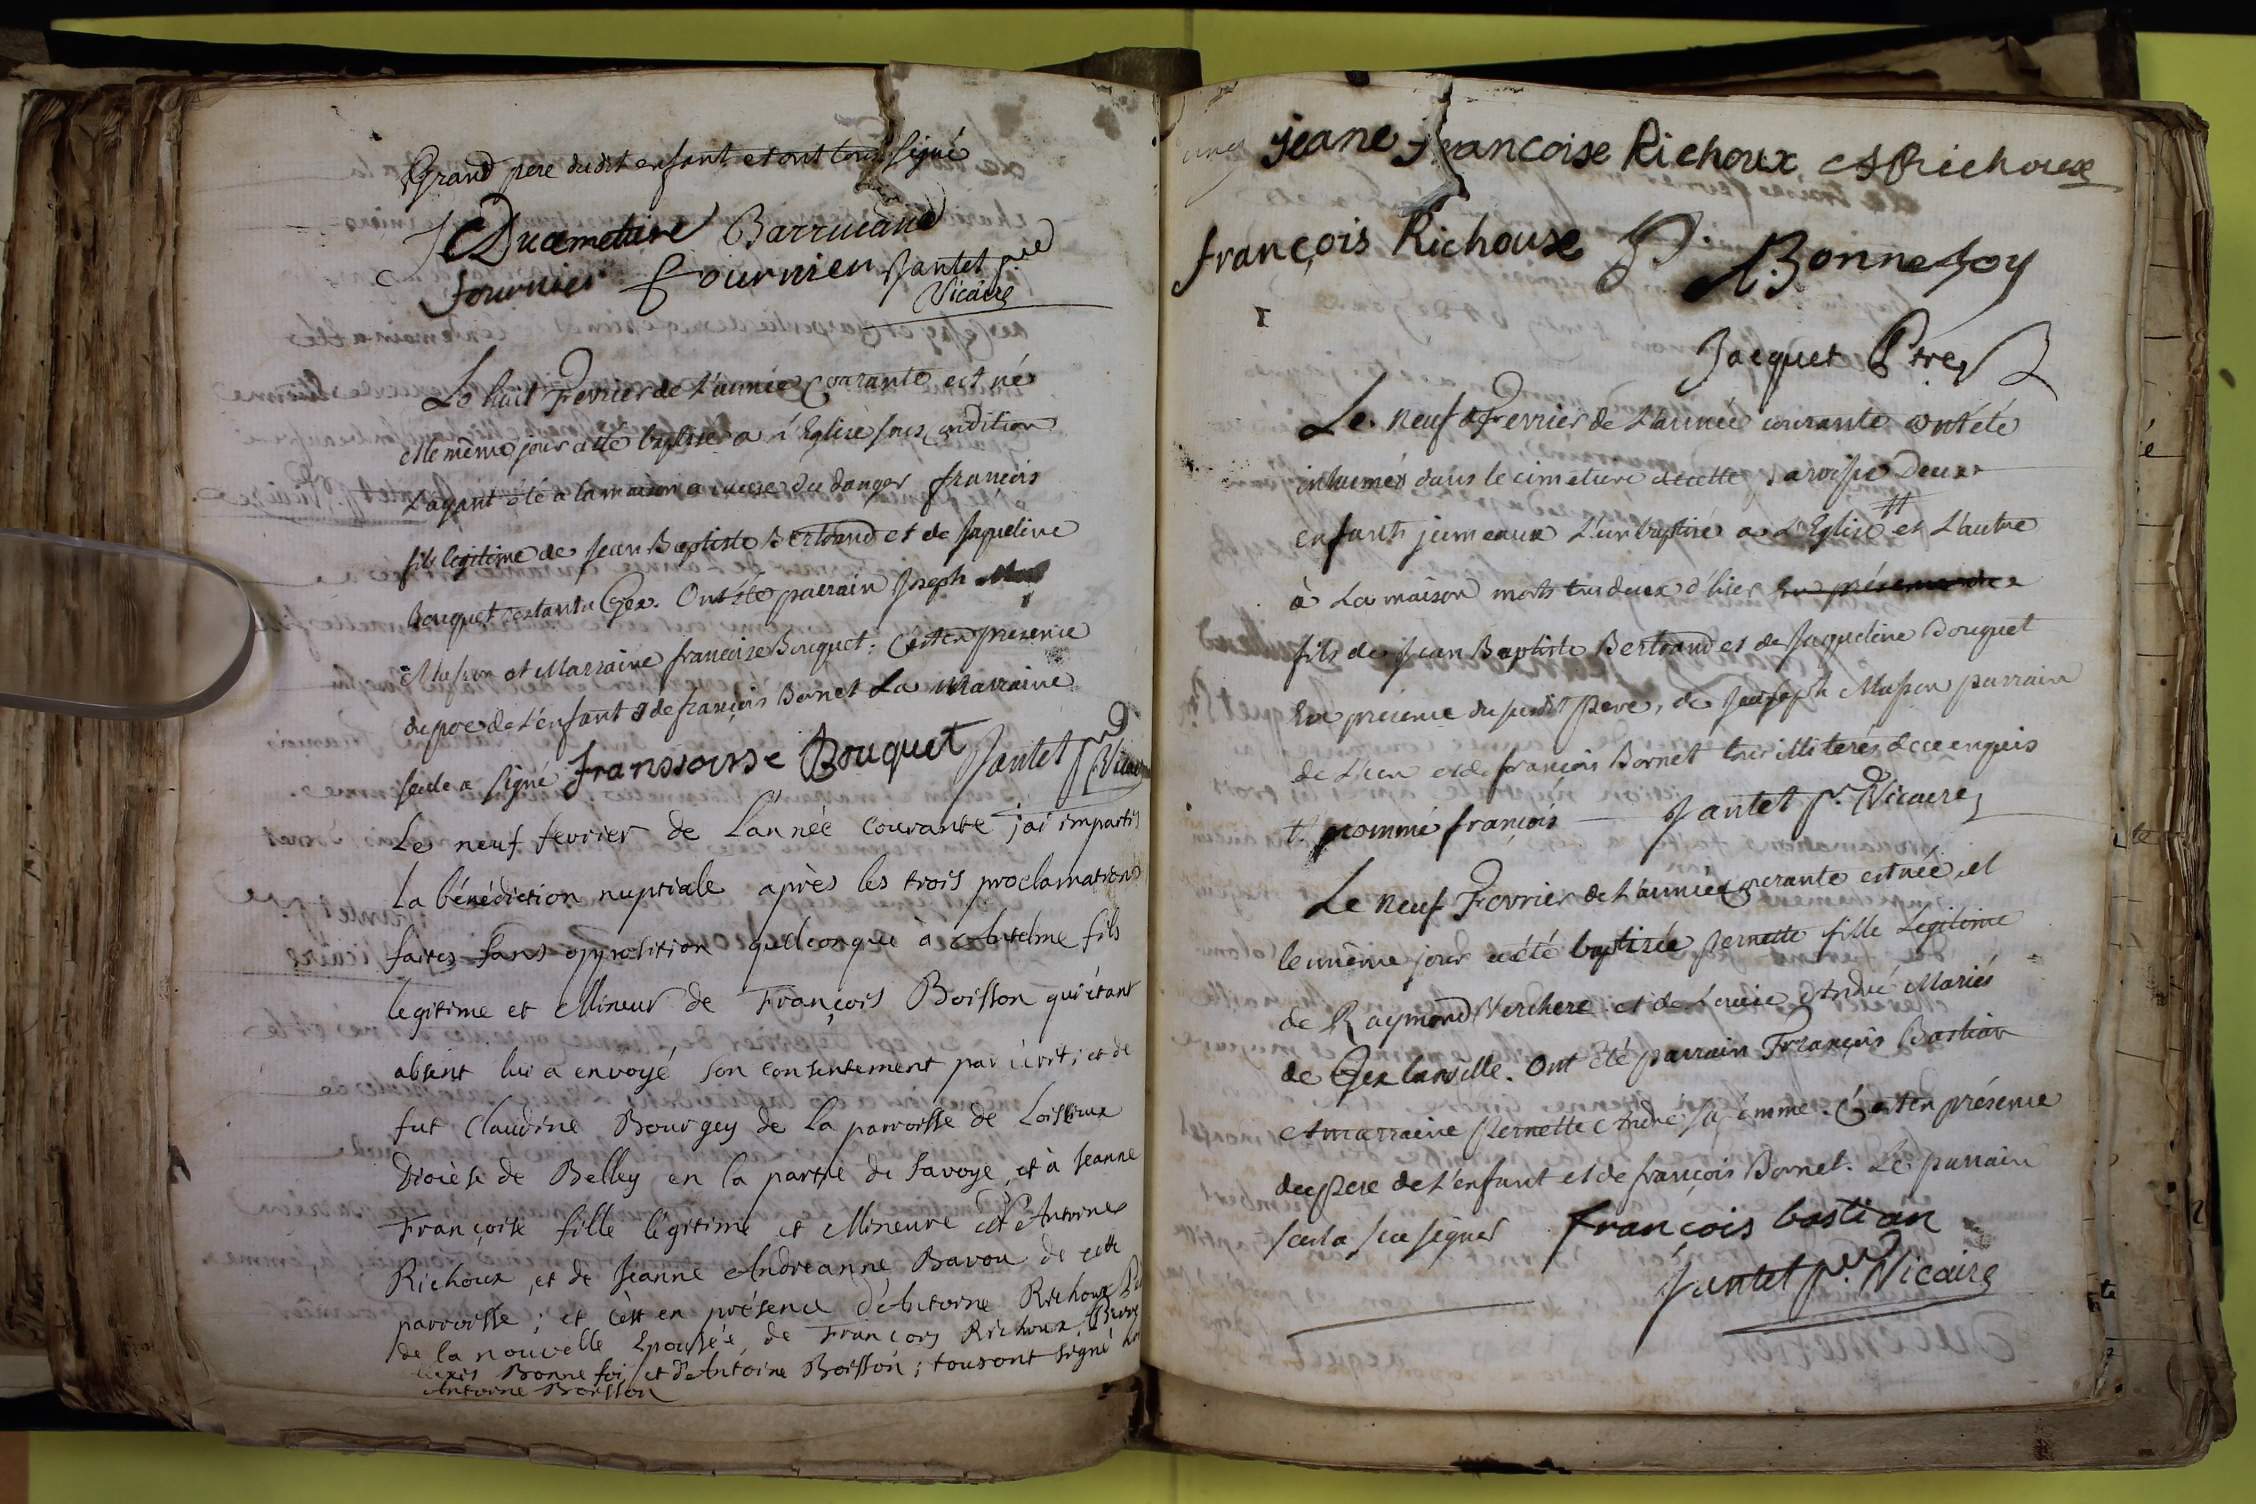 Grand pere dudit enfant et ont tous signé
Ducimetiere Barrucand
fournier fournier Jantet p.re
Vicaire
Le huit Fevrier de L'année Courante est né
et le même jour a été baptisé a l'Eglise sous condition
L'ayant été a la maison a cause du danger françois
fils legitime de Jean Baptiste Bertrand et de Jaqueline
Bouquet restant a Gex. Ont été parrain Joseph
Masson et Marraine francoise Bouquet. C'est en presence
du pere de L'enfant & de françois Bornet La Marraine
seule a signé franssoisse Bouquet Jantet p.re Vicaire
Le neuf fevrier de L'année courante j'ai imparti
La bénédiction nuptiale après les trois proclamations
faites sans opposition quelconque à Anselme fils
legitime et Mineur de François Boisson qui étant
absent lui a envoyé son consentement par écrit; et de
fut Claudine Bourgey de La parroisse de Loissieux
Diocèse de Belley en la partie de Savoye, et à Jeanne
Françoise fille légitime et Mineure d'Antoine
Richoux, et de Jeanne Andreanne Bavou de cette
parroisse; et c'est en présence d'Antoine Richoux
de la nouvelle Epousée, de François Richoux,
Bonne foi, et d'Antoine Boisson; tous ont signé
Antoine Boisson
jeane francoise Richoux A Richoux
françois Richoux P. A. Bonnefoy
Jacquet Ptre
Le neuf Fevrier de L'année courante ont été
inhumés dans le cimetiere de cette Paroisse Deux
enfants jumeaux L'un baptisé a L'Eglise # et L'autre
à La maison morts tous deux d'hier
fils de Jean Baptiste Bertrand et de Jaqueline Bouquet
En présence du susdit Pere, de Joseph Masson parrain
de L'un et de françois Bornet tous illiterés de ce enquis
# nommé françois Jantet p.r Vicaire
Le neuf Fevrier de L'année Courante est née, et
le même jour a été baptisée Pernette fille Legitime
de Raymond Verchere et de Louise André Mariés
de Gex la ville. Ont été parrain François Bastian
et marraine Pernette André sa femme. C'est en présence
du Pere de L'enfant et de françois Bornet. Le parrain
seul a sceu signer françois bastian
Jantet p.re Vicaire